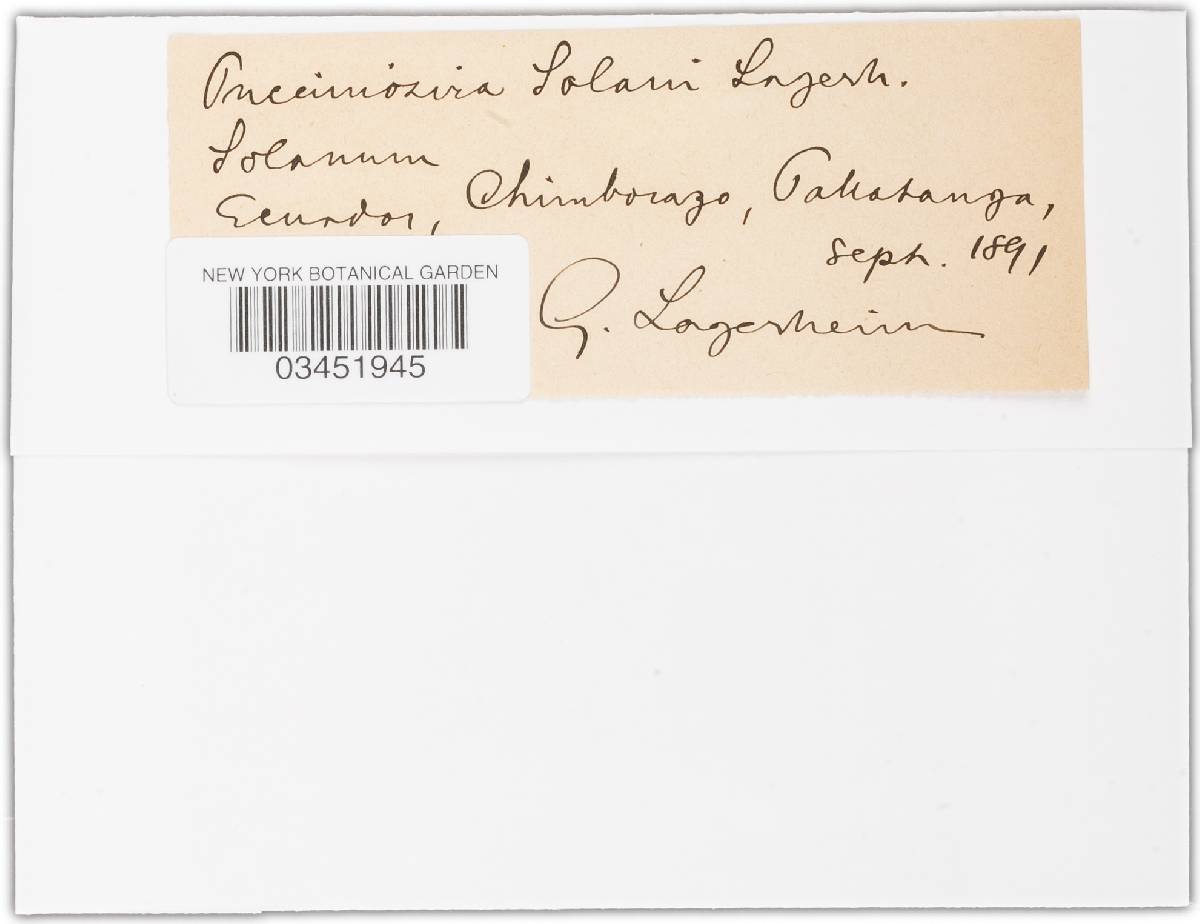 Pucciniosira Solani Lagerh.
Solanum
Ecuador, Chimborazo, Pallatanga,
Sept. 1891
G. Lagerheim
NEW YORK BOTANICAL GARDEN
03451945